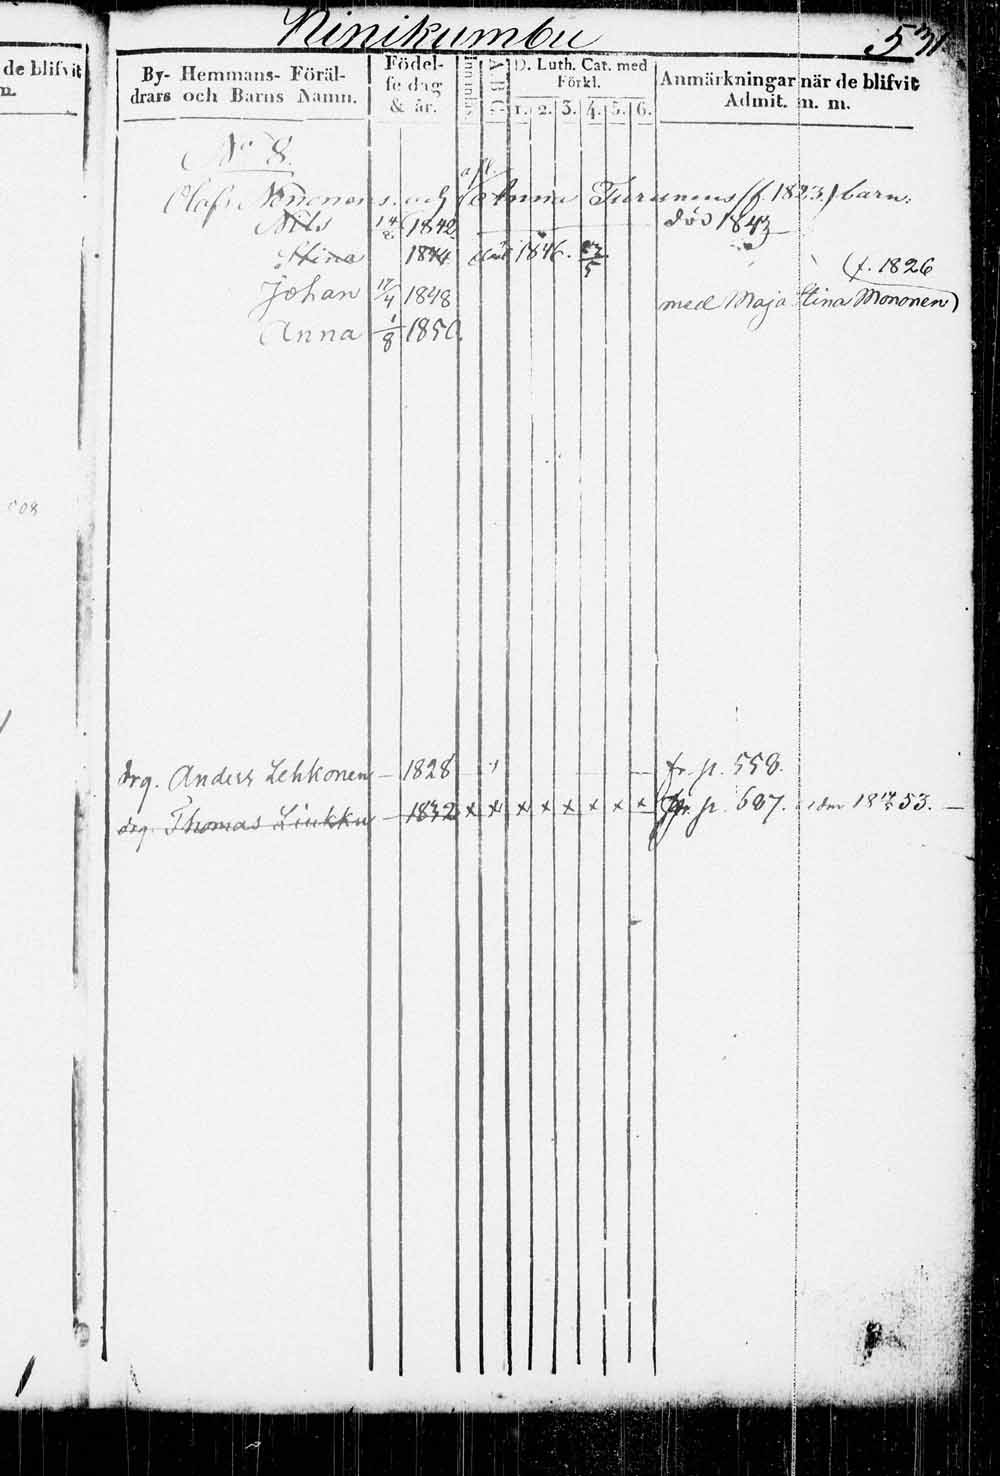 Ninikumbu 531
de blifvit
By- Hemmans- Föräl-
drars och Barns Namn.
Födel-
se dag
& år.
A B C
D. Luth. Cat. med
Förkl.
1. 2. 3. 4. 5. 6.
Anmärkningar när de blifvit
Admit. m. m.
No 8.
Olofs Nononens och afl. Anna Turunens (f. 1823.) barn:
Nils 1842 död 1843
Stina 1844 död 1846. 27/5
(f. 1826
Johan 17/4 1848 med Maja Stina Mononen)
Anna 1/8 1850.
508
drg. Anders Lehkonen 1828 fr. p. 558.
drg. Thomas Liukku 1832 x x x x x x x x fr. p. 687. 53.